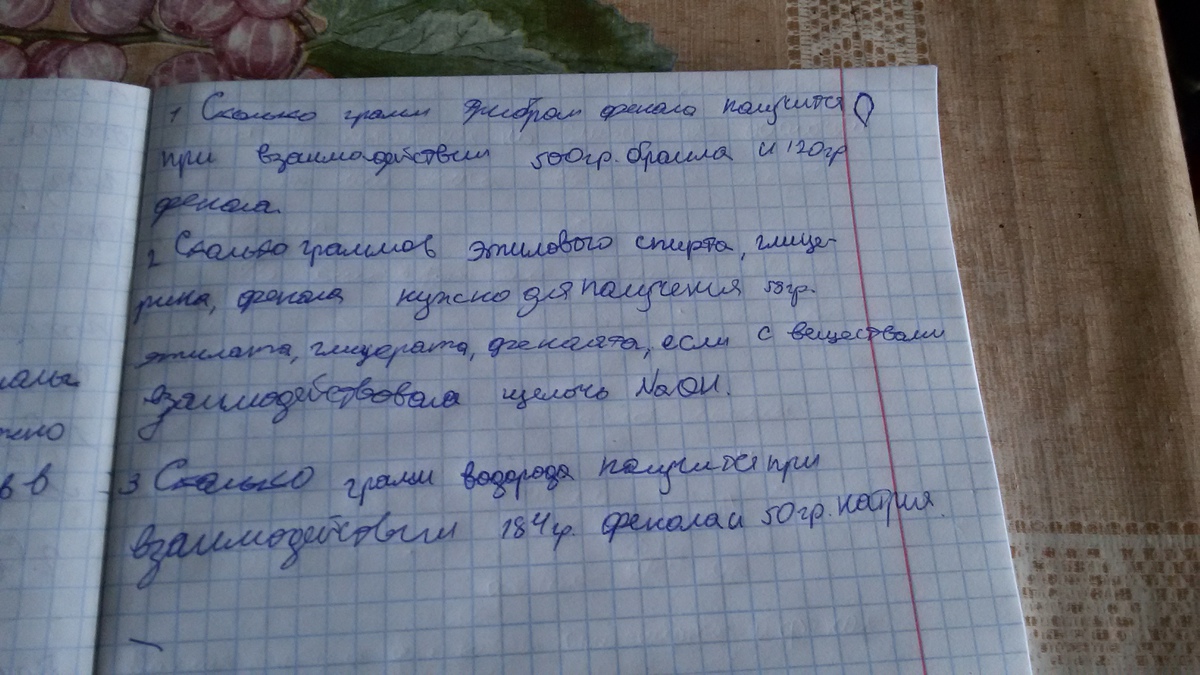 1 Сколько грамм трибром фенола получится
при взаимодействии 500гр. брома и 120гр
фенола.
2 Сколько граммов этилового спирта, глице-
рина, фенола нужно для получения 58гр.
этилата, глицерата, фенолята, если с веществами
взаимодействовала щелочь NaOH.
3 Сколько грамм водорода получится при
взаимодействии 184гр. фенола и 50гр. натрия.
жно
в в